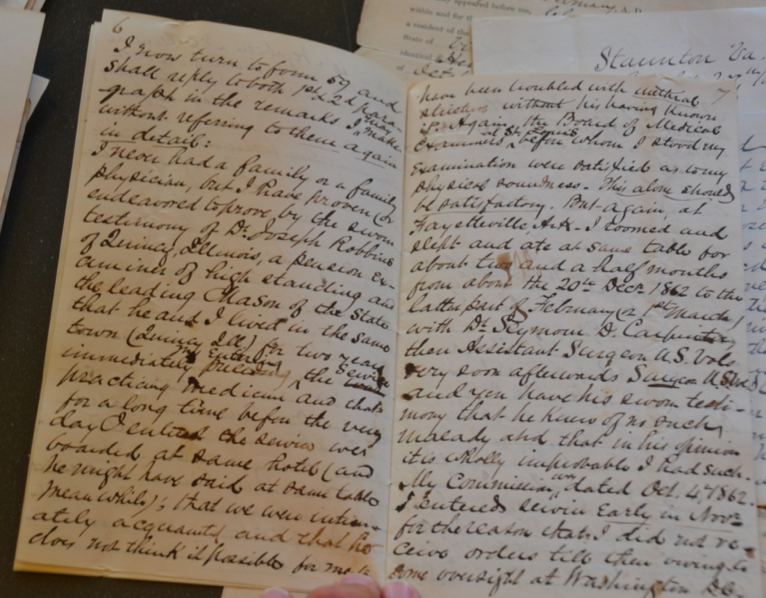 6
I now turn to form 59 and
shall reply to both 1st & 2d para-
graph in the remarks I may make
without referring to them again
in detail:
I never had a family or a family
physician, but I have proven (or
endeavored to prove) by the sworn
testimony of Dr. Joseph Robbins
of Quincy, Illinois, a pension Ex-
aminer of high standing and
the leading Mason of the State
that he and I lived in the same
town (Quincy Ill) for two years
immediately preceding my entering the service
practicing medicine and that
for a long time before the very
day I entered the service we
boarded at same hotel (and
he might have said at same table
meanwhile); that we were intim-
ately acquainted, and that he
does not think it possible for me to
7
have been troubled with urethral
stricture without his having known
it. Again, the Board of Medical
Examiners at St. Louis before whom I stood my
examination were satisfied as to my
physical soundness. This alone should
be satisfactory. But again, at
Fayetteville, Ark. I roomed and
slept and ate at same table for
about two and a half months
from about the 20th Decr 1862 to the
latter part of February (or 1st March)
with Dr. Seymour D. Carpenter
then Assistant Surgeon U.S. Vols
very soon afterwards Surgeon U.S. Vols
and you have his sworn testi-
mony that he knew of no such
malady and that in his opinion
it is wholly improbable I had such.
My Commission was dated Oct. 4, 1862.
I entered service Early in Novr
for the reason that I did not re-
ceive orders till then owing to
some oversight at Washington D.C.
Staunton Va.
appeared before me,
within and for
a resident of
State of
identical